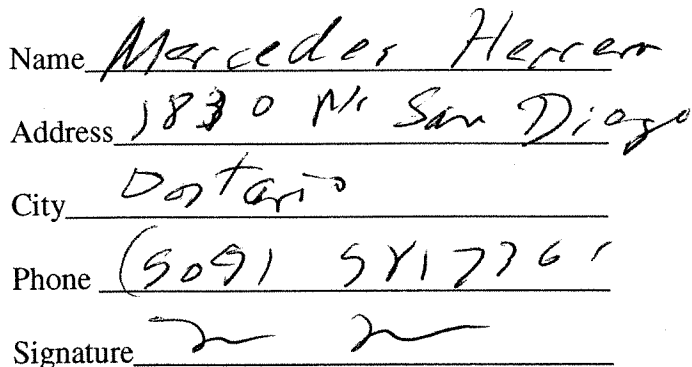 Name Mercedes Herrera
Address 1830 N. San Diego
City Ontario
Phone (909)
Signature